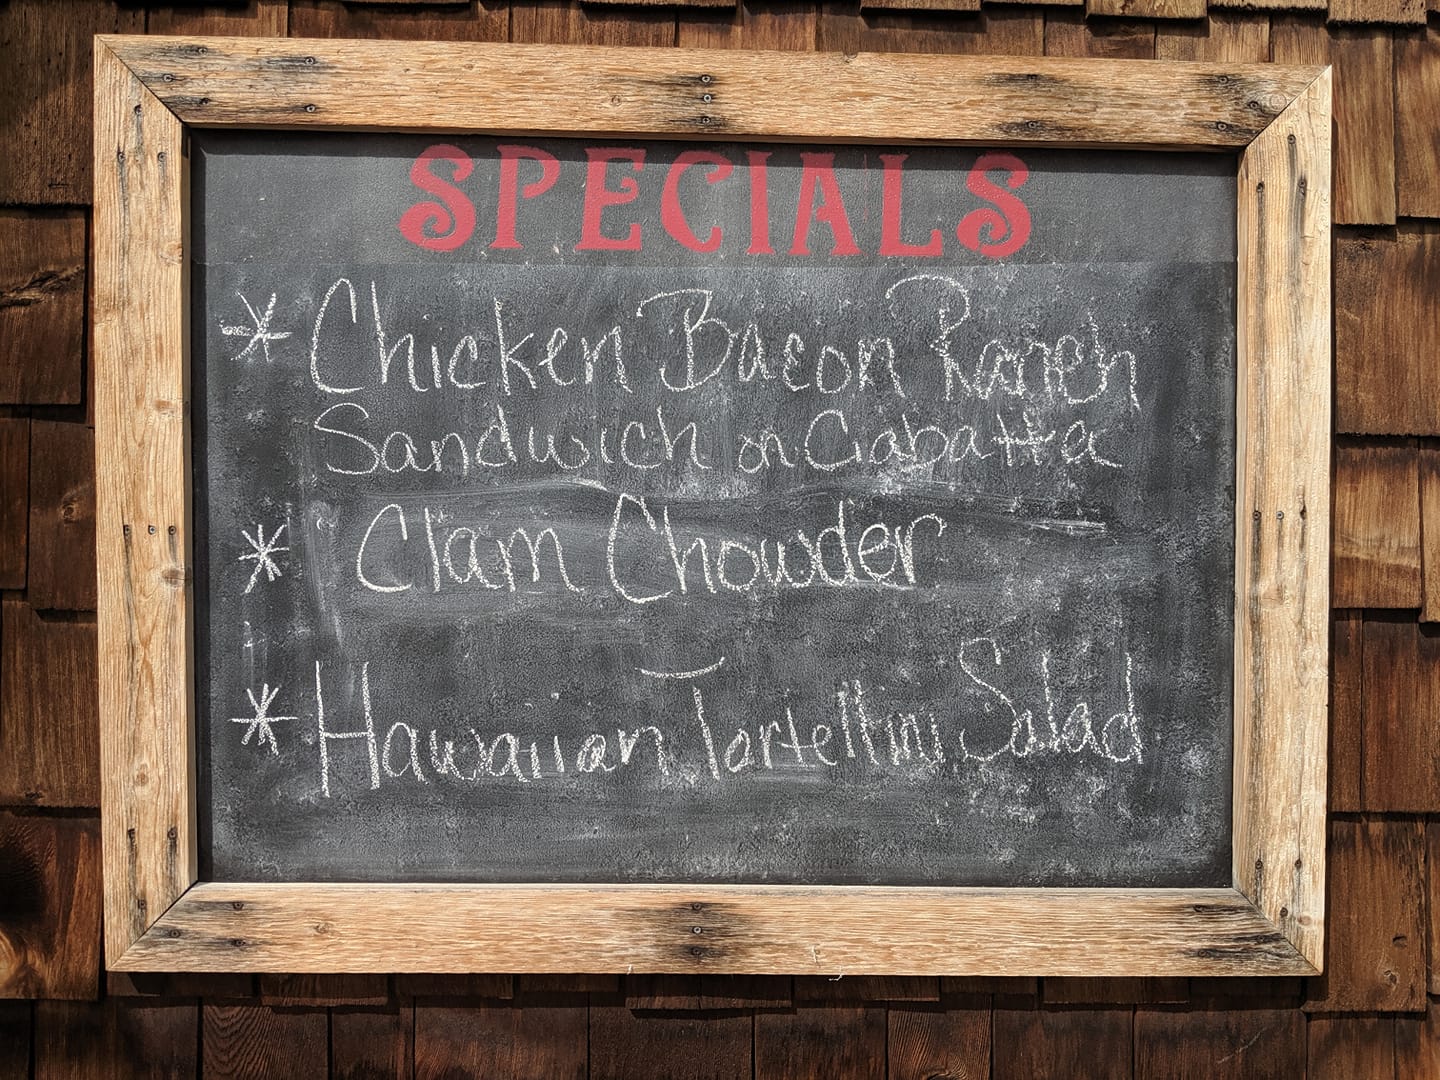 SPECIALS
* Chicken Bacon Ranch
Sandwich on Ciabatta
* Clam Chowder
* Hawaiian Tortellini Salad